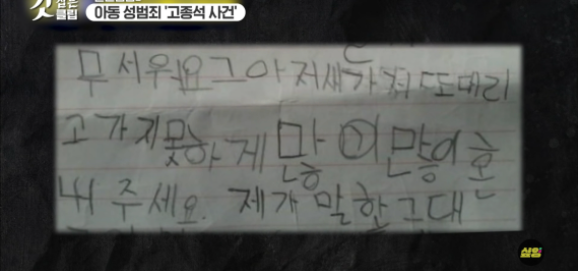 잡는
클립
아동 성범죄 '고종석 사건'
무서워요그아저씨가저또데리
고가지못하게많이많이혼
내주세요. 제가말한그대